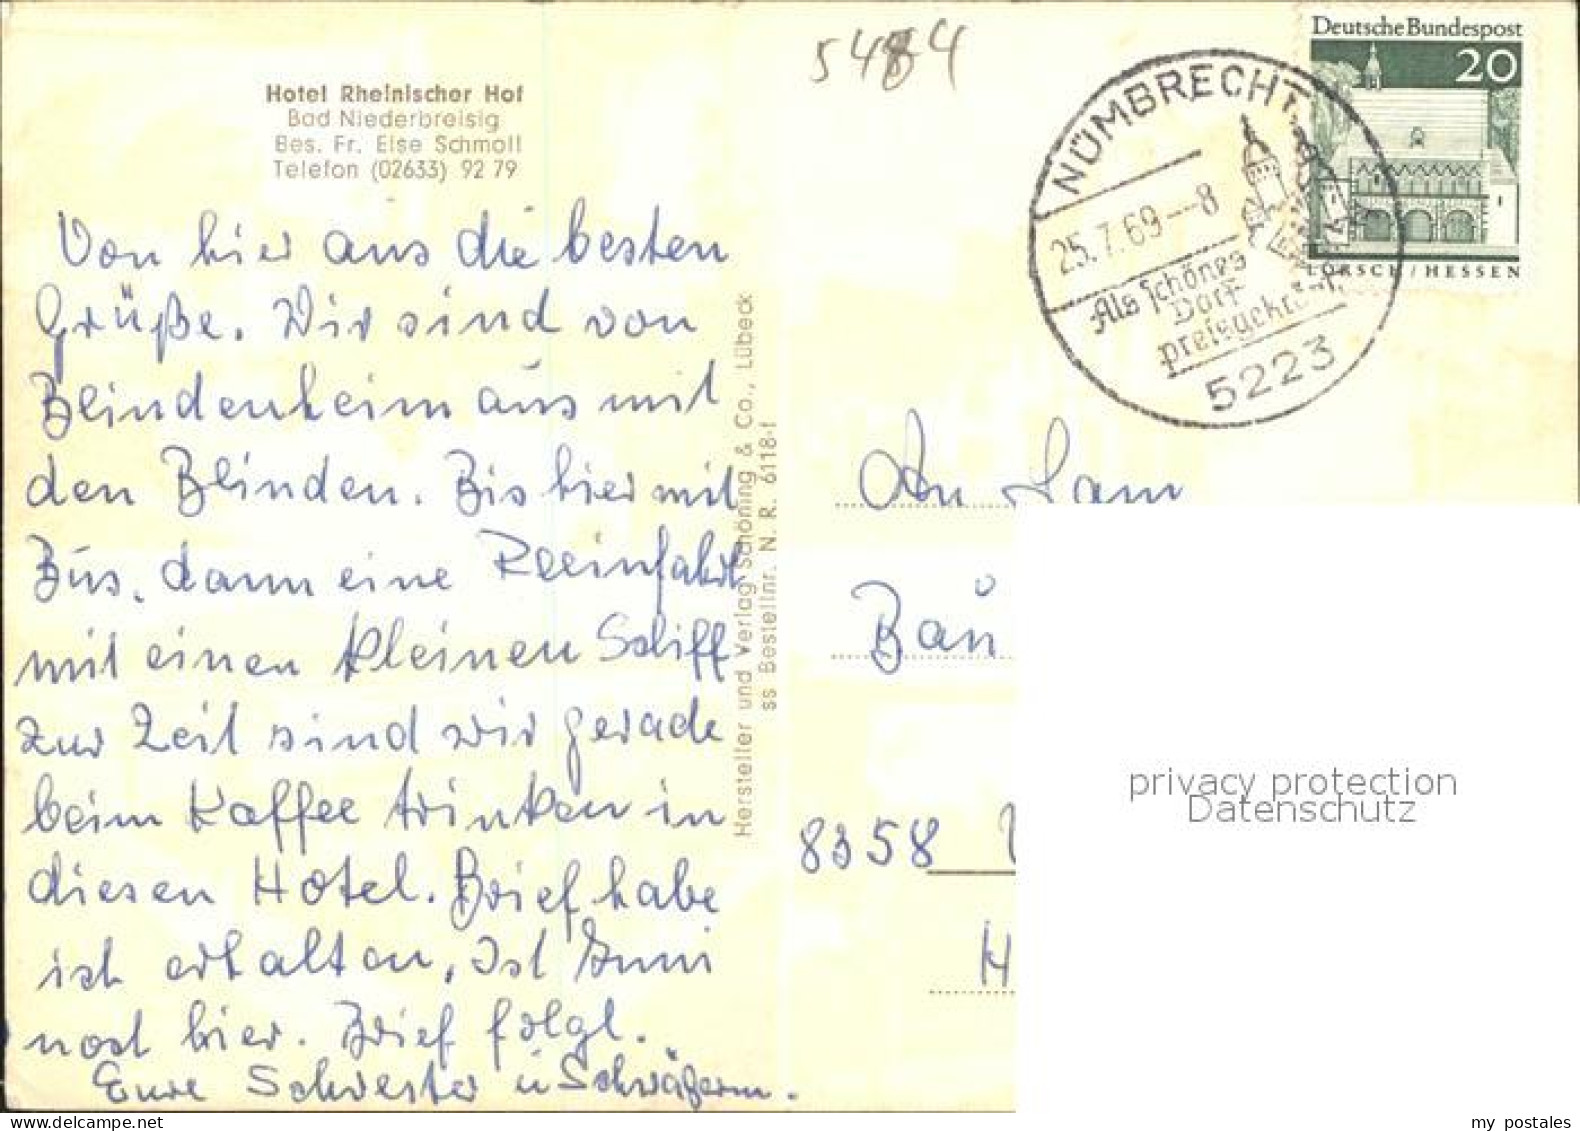 5484
Hotel Rheinischer Hof
Bad Niederbreisig
Bes. Fr. Else Schmoll
Telefon (02633) 92 79
Von hier aus die besten
Grüße. Wir sind von
Blindenheim aus mit
den Blinden. Bis hier mit
Bus, dann eine Rheinfahrt
mit einen kleinen Schiff
zur Zeit sind wir gerade
beim Kaffee trinken in
diesen Hotel. Brief habe
ich erhalten. Ist
noch hier. Brief folgt.
Eure Schwester u Schwägerin.
Hersteller und Verlag Schöning & Co., Lübeck
ss Bestellnr. N. R. 6118-f
Deutsche Bundespost
20
LORSCH / HESSEN
NÜMBRECHT
25.7.69--8
Als schönes
Dorf
preisgekrönt
5223
An Fam
Bau
8358
H
privacy protection
Datenschutz
my postales